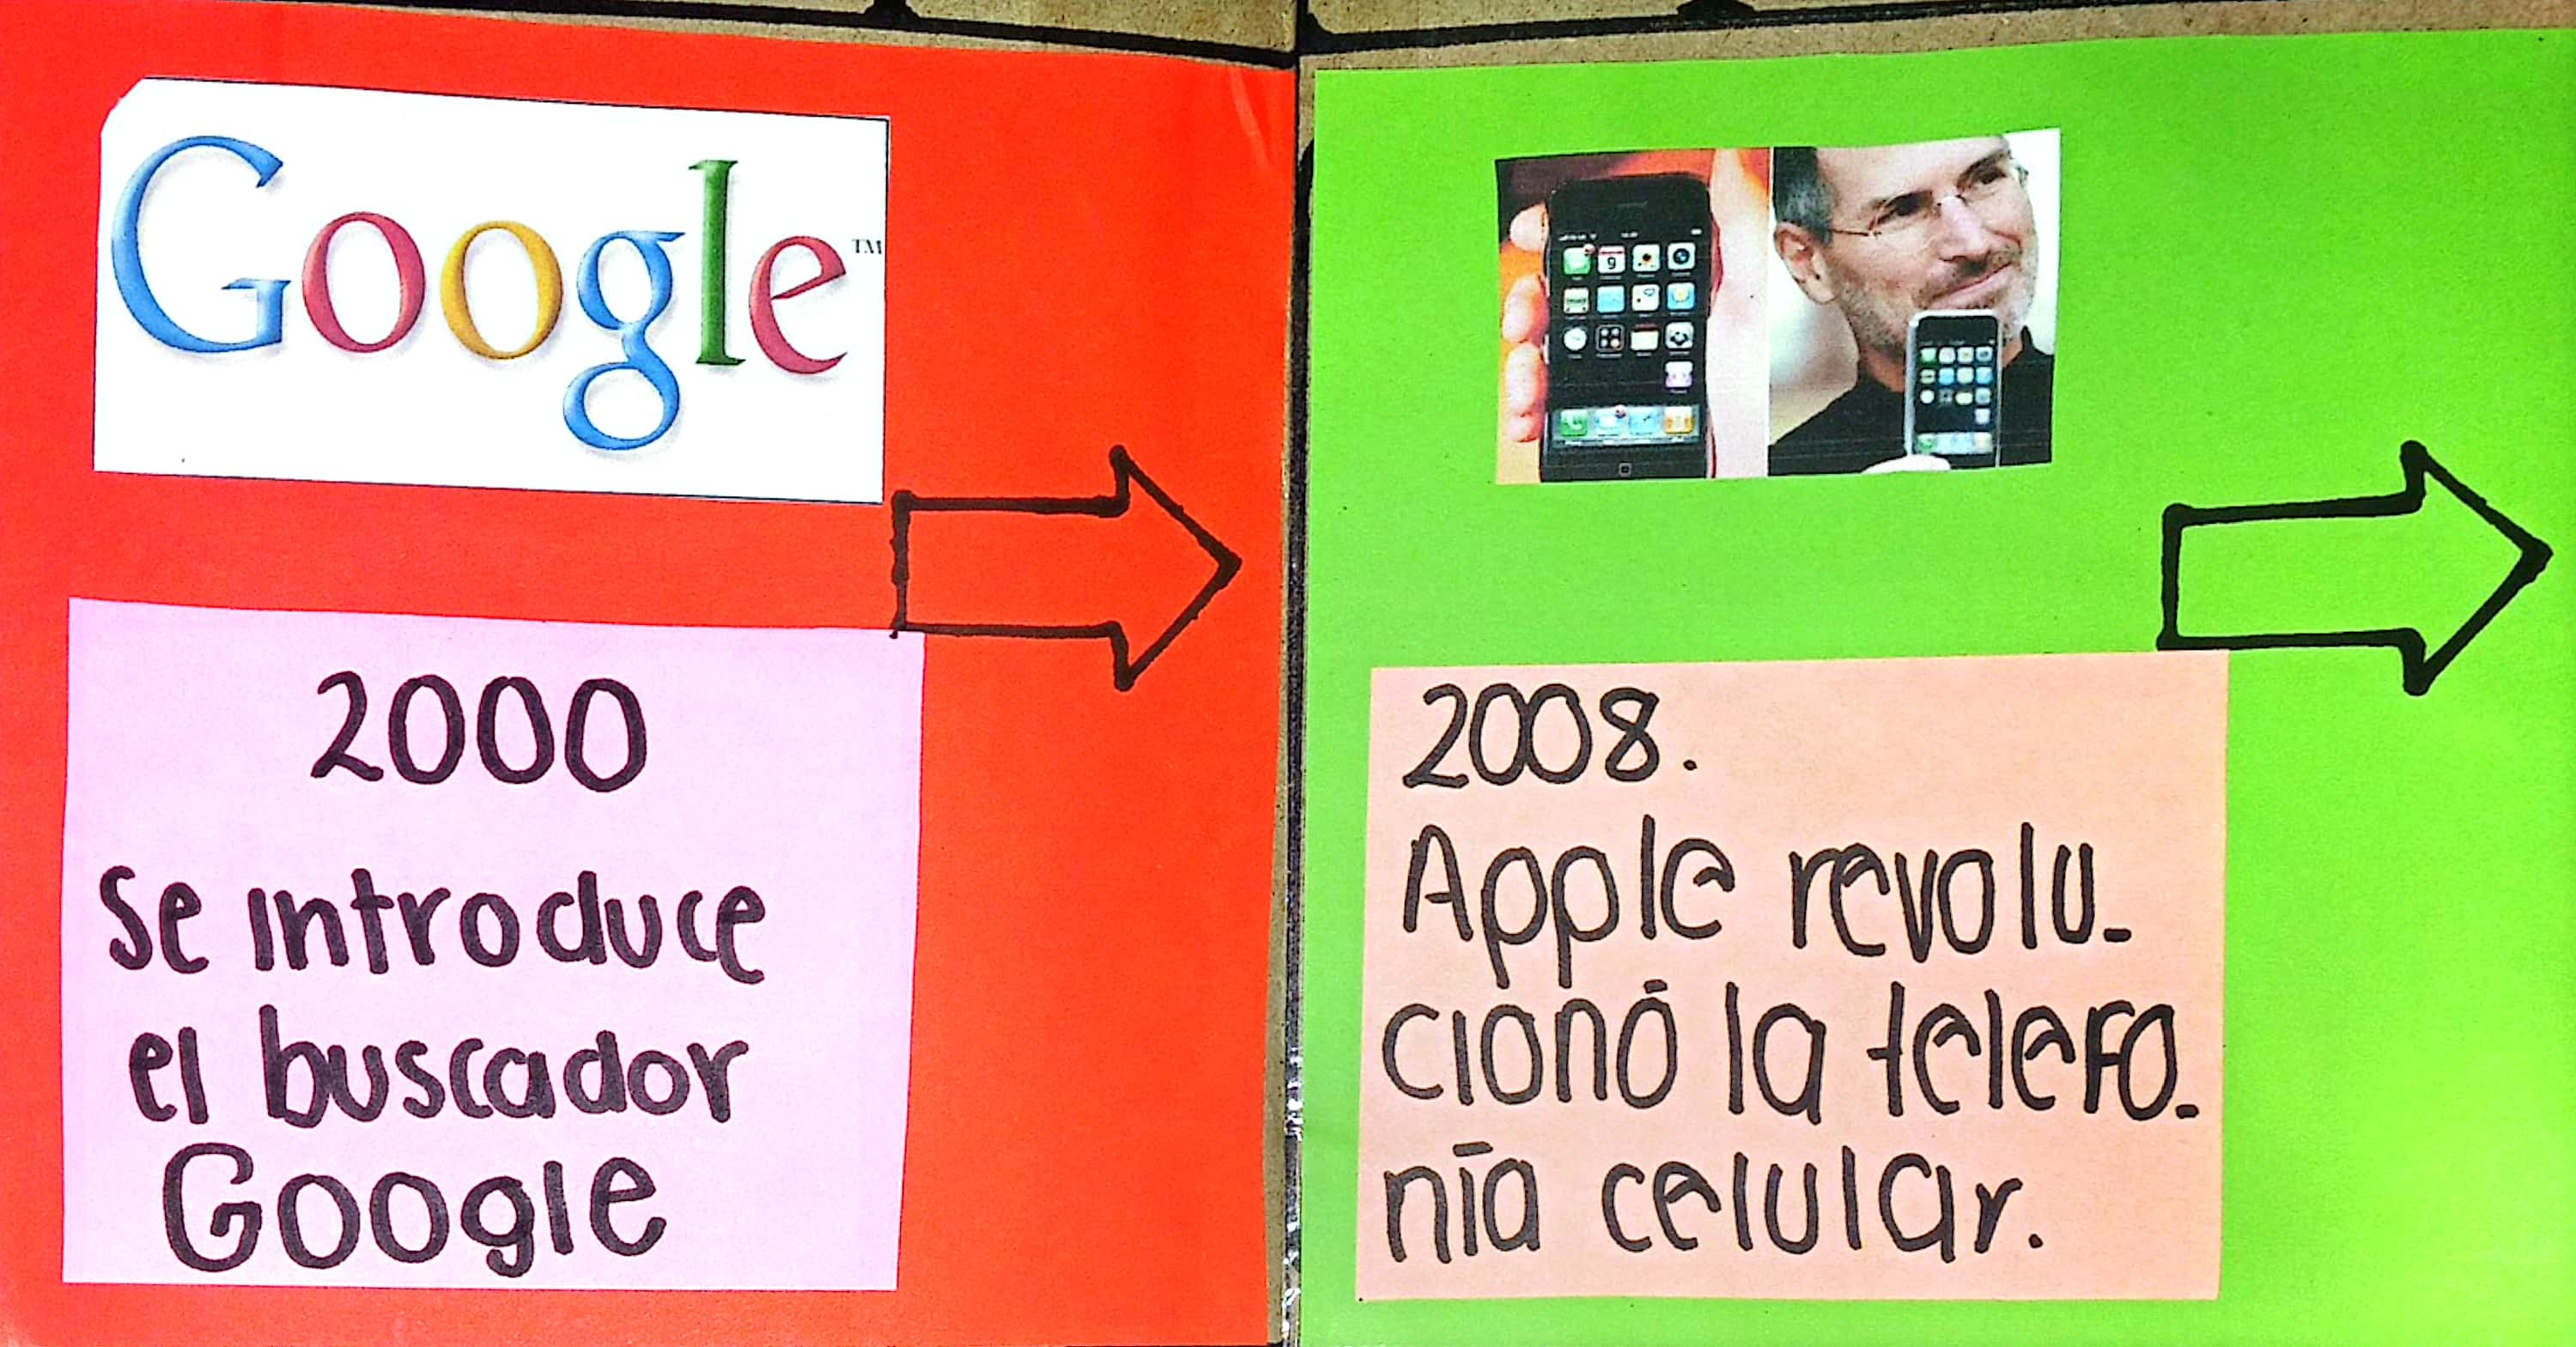 Google™
2000
Se introduce
el buscador
Google
2008.
Apple revolu-
cionó la telefo-
nía celular.